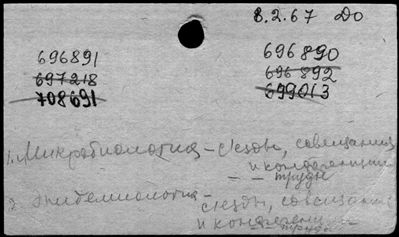 8.2.67 До
696891 696890
697218 696892
708691 699013
1. Микробиология - Съезды, совещания
и конференции
- - труды
2. Эпидемиология -
съезды, совещания
и конференции -
- труды